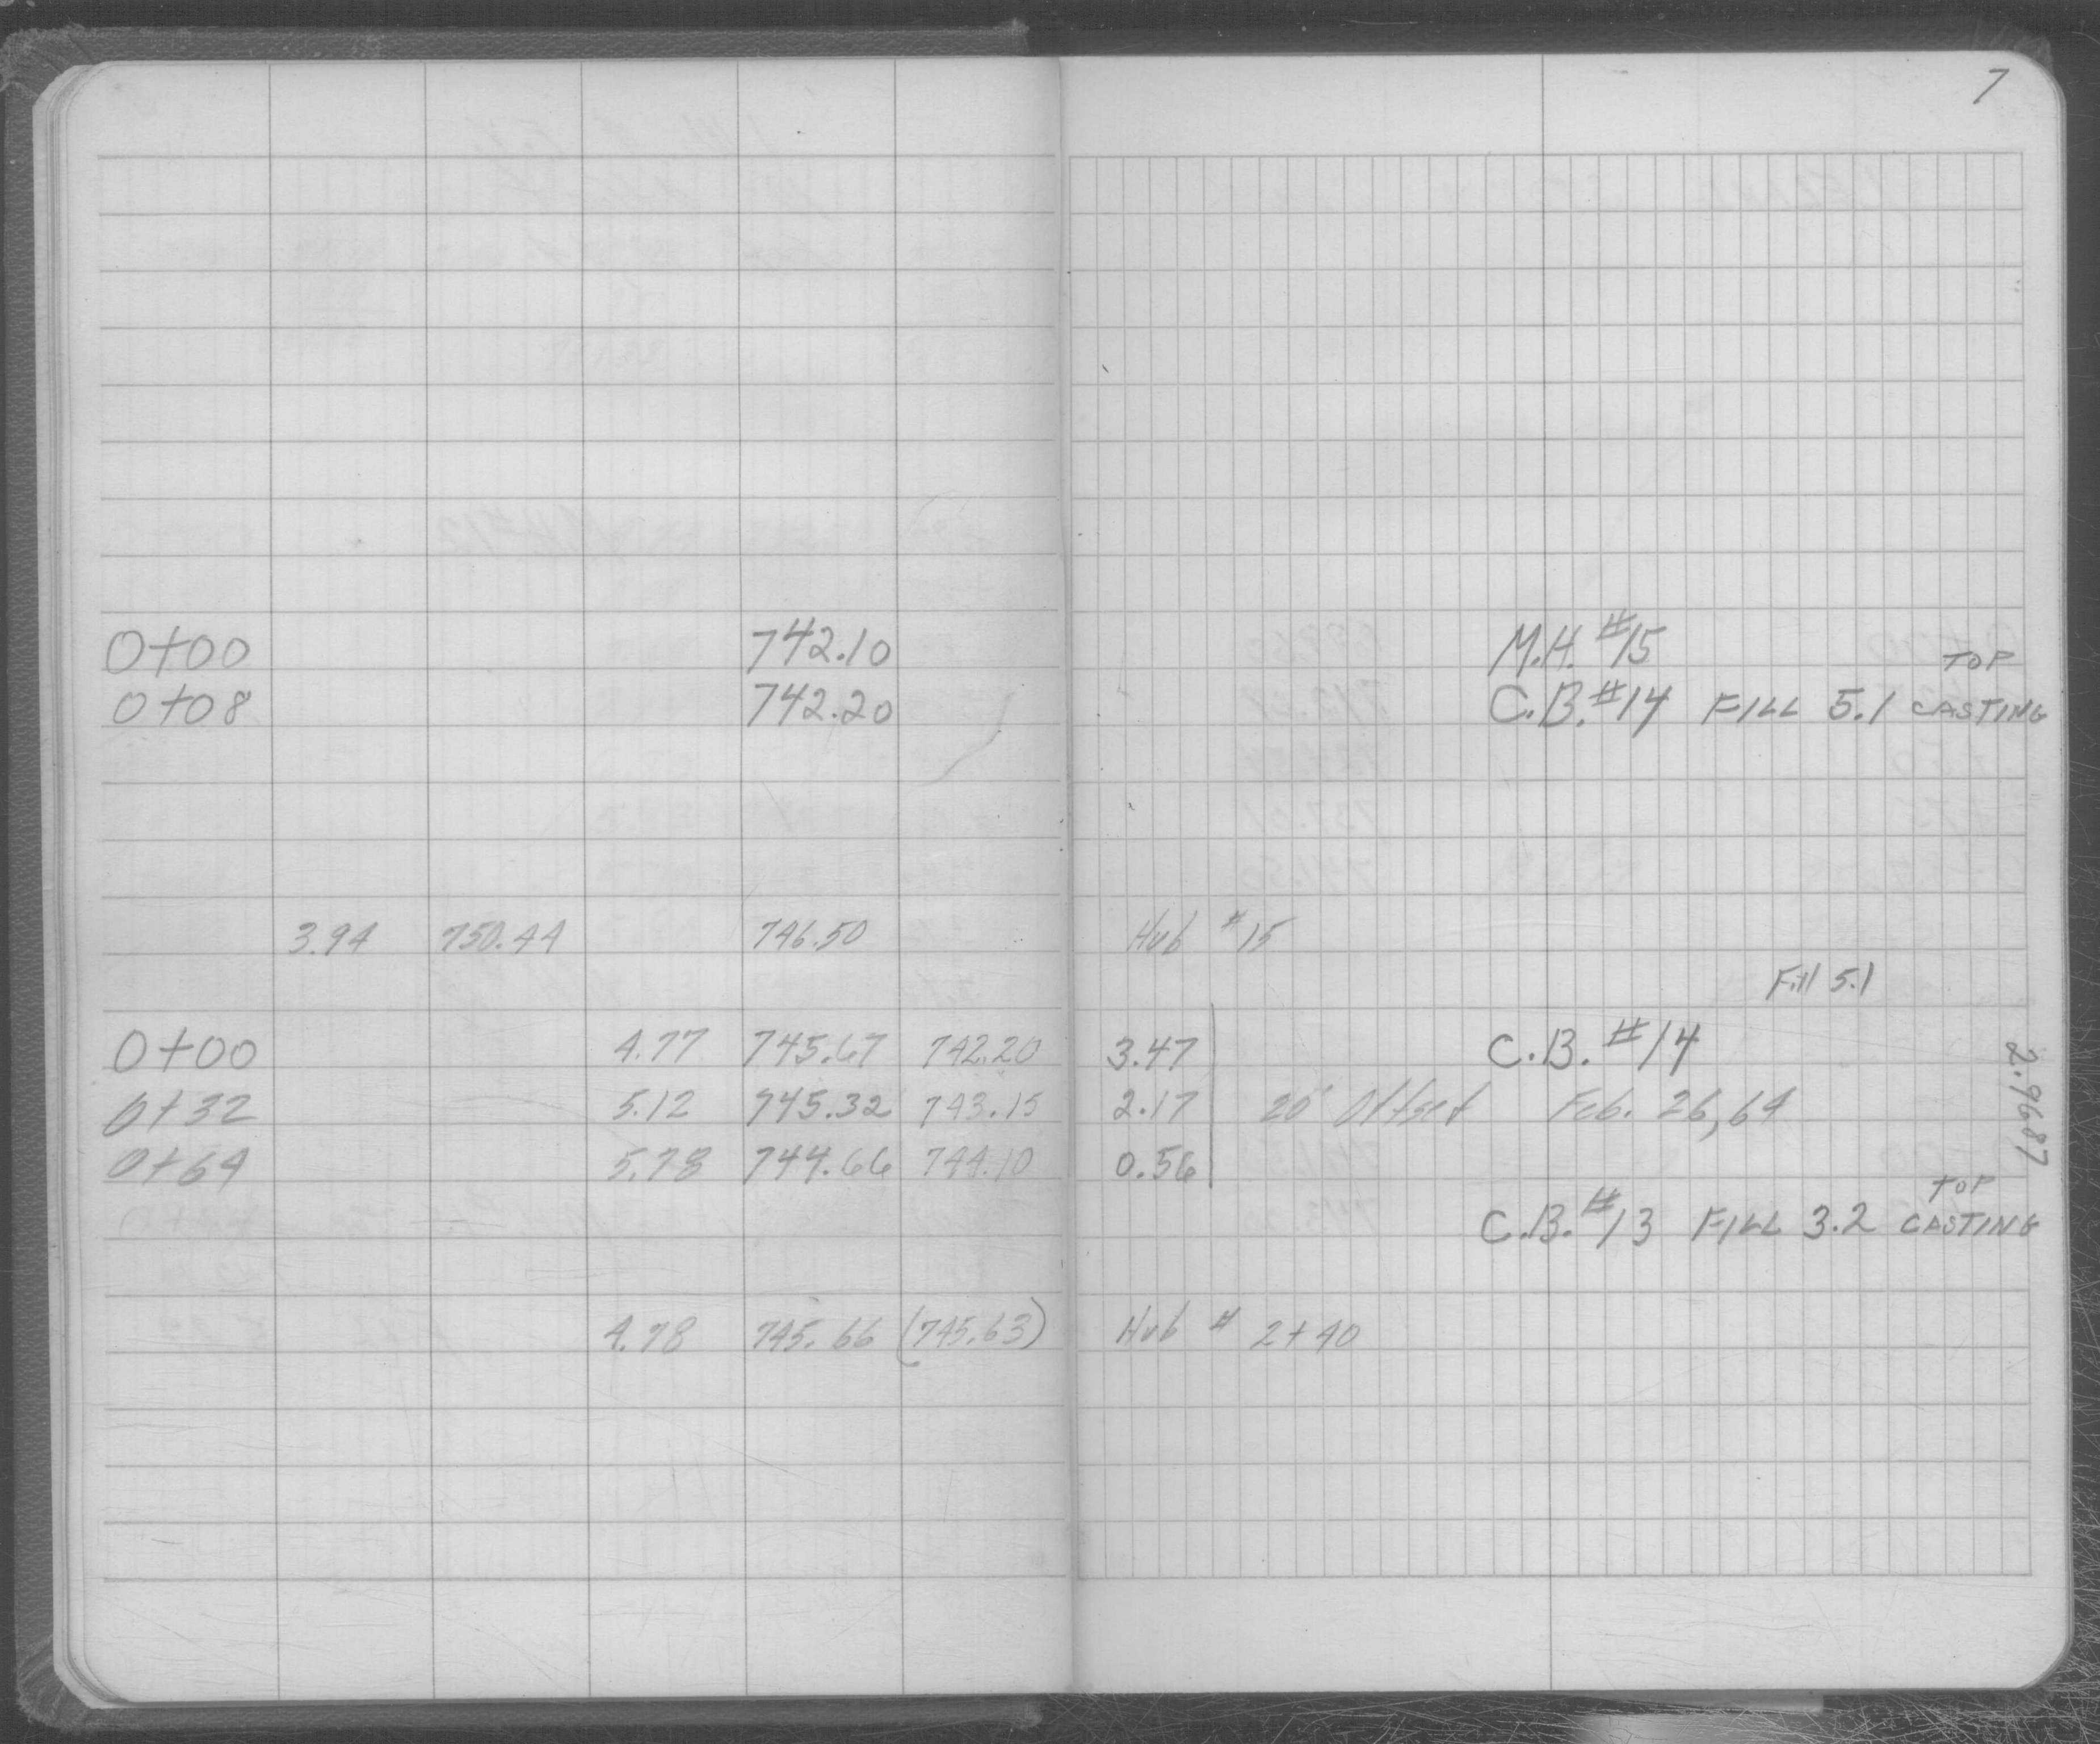 7
0+00 742.10 M.H. #15
0+08 742.20 C.B. #14 FILL 5.1 TOP CASTING
3.94 750.44 746.50 Hub #15
Fill 5.1
0+00 4.77 745.67 742.20 3.47 C.B. #14
0+32 5.12 745.32 743.15 2.17 20' Offset Feb. 26, 64
0+64 5.78 744.66 744.10 0.56
2.9687
C.B. #13 FILL 3.2 TOP CASTING
4.78 745.66 (745.63) Hub # 2+40